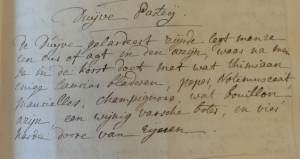 Duijve Pasteij
De Duijve gelardeert zijnde legt men ze
een dis of agt in den azijn, waar na men
ze in de korst doet met wat thimiaan
enige laurier bladeren, peper Notemuscaat
mourielles, champignons, wat bouillon
azijn een wijnig varsche boter, en vier
harde dorre van Eijeren